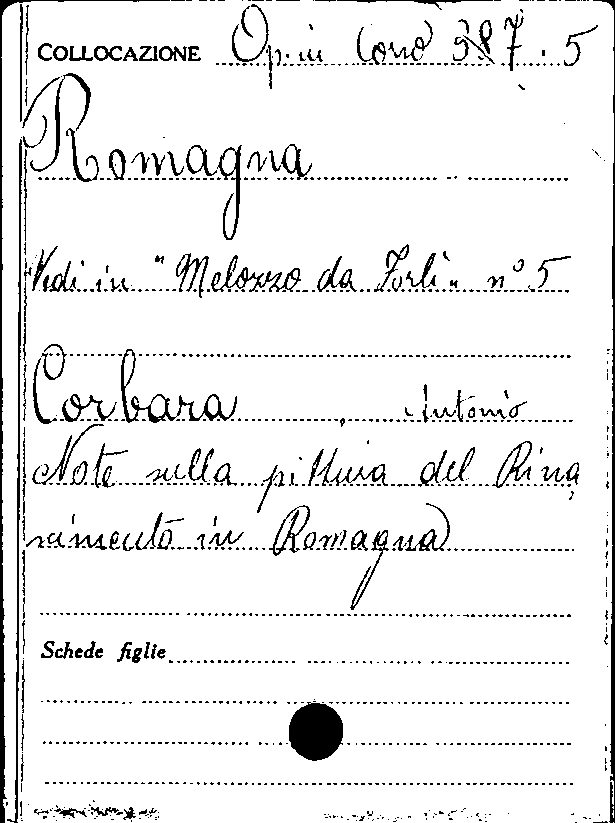 COLLOCAZIONE Op. in Corso 387.5
Romagna
Vedi in "Melozzo da Forlì" n° 5
Corbara, Antonio
Note sulla pittura del Rina
scimento in Romagna
Schede figlie